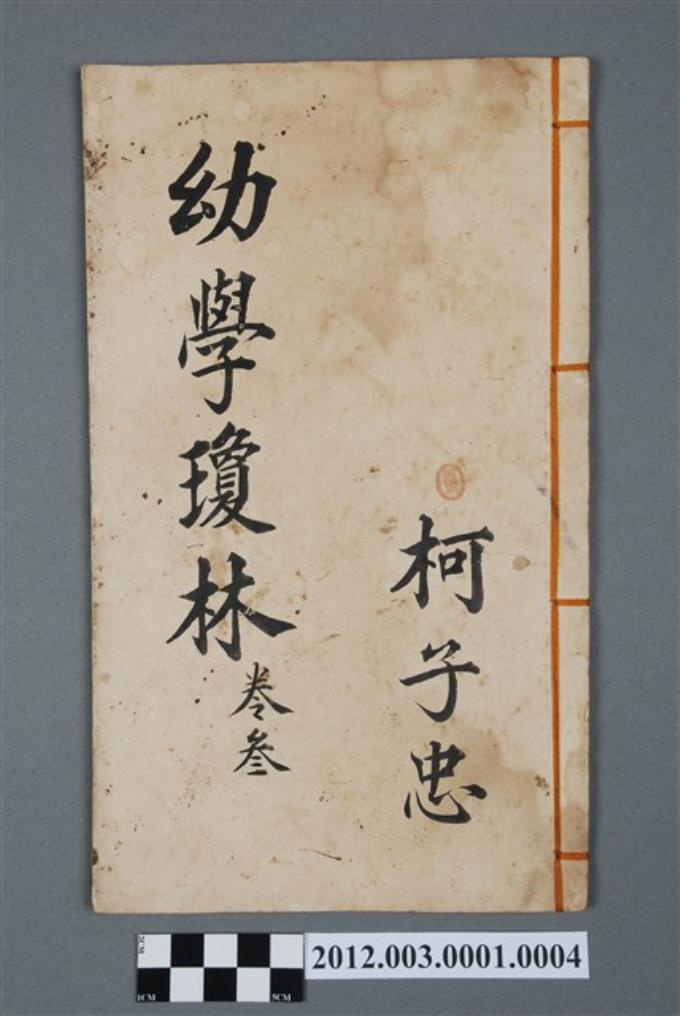 幼學瓊林
卷叁
柯子忠
2CM
1CM
5CM
2012.003.0001.0004